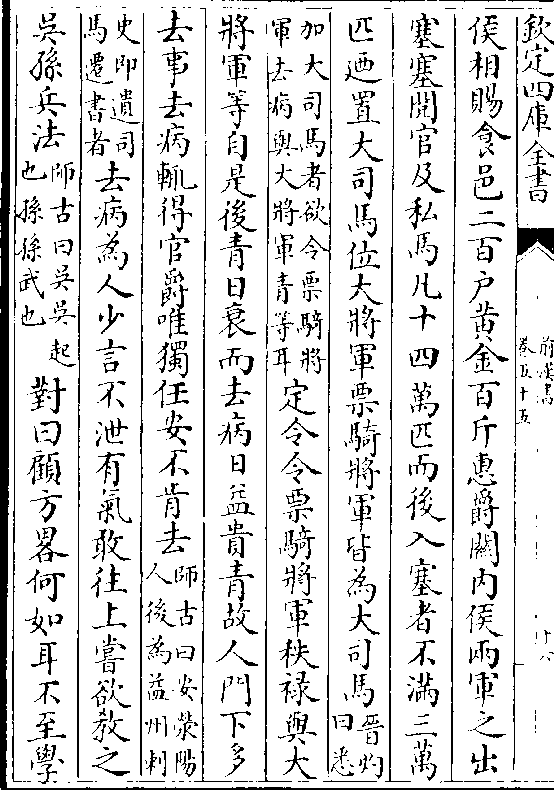 欽定四庫全書
前漢書
卷五十五
十六
侯相賜食邑二百户黄金百斤惠爵闗内侯兩軍之出
塞塞閱官及私馬凡十四萬匹而後入塞者不滿三萬
匹迺置大司馬位大將軍票騎將軍皆為大司馬晉灼曰悉
加大司馬者欲令票騎將軍去病與大將軍青等耳定令令票騎將軍秩禄與大
將軍等自是後青日衰而去病日益貴青故人門下多
去事去病輒得官爵唯獨任安不肯去師古曰安滎陽人後為益州刺
史即遺司馬遷書者去病為人少言不泄有氣敢往上嘗欲教之
吳孫兵法師古曰吳吳起也孫孫武也對曰顧方畧何如耳不至學